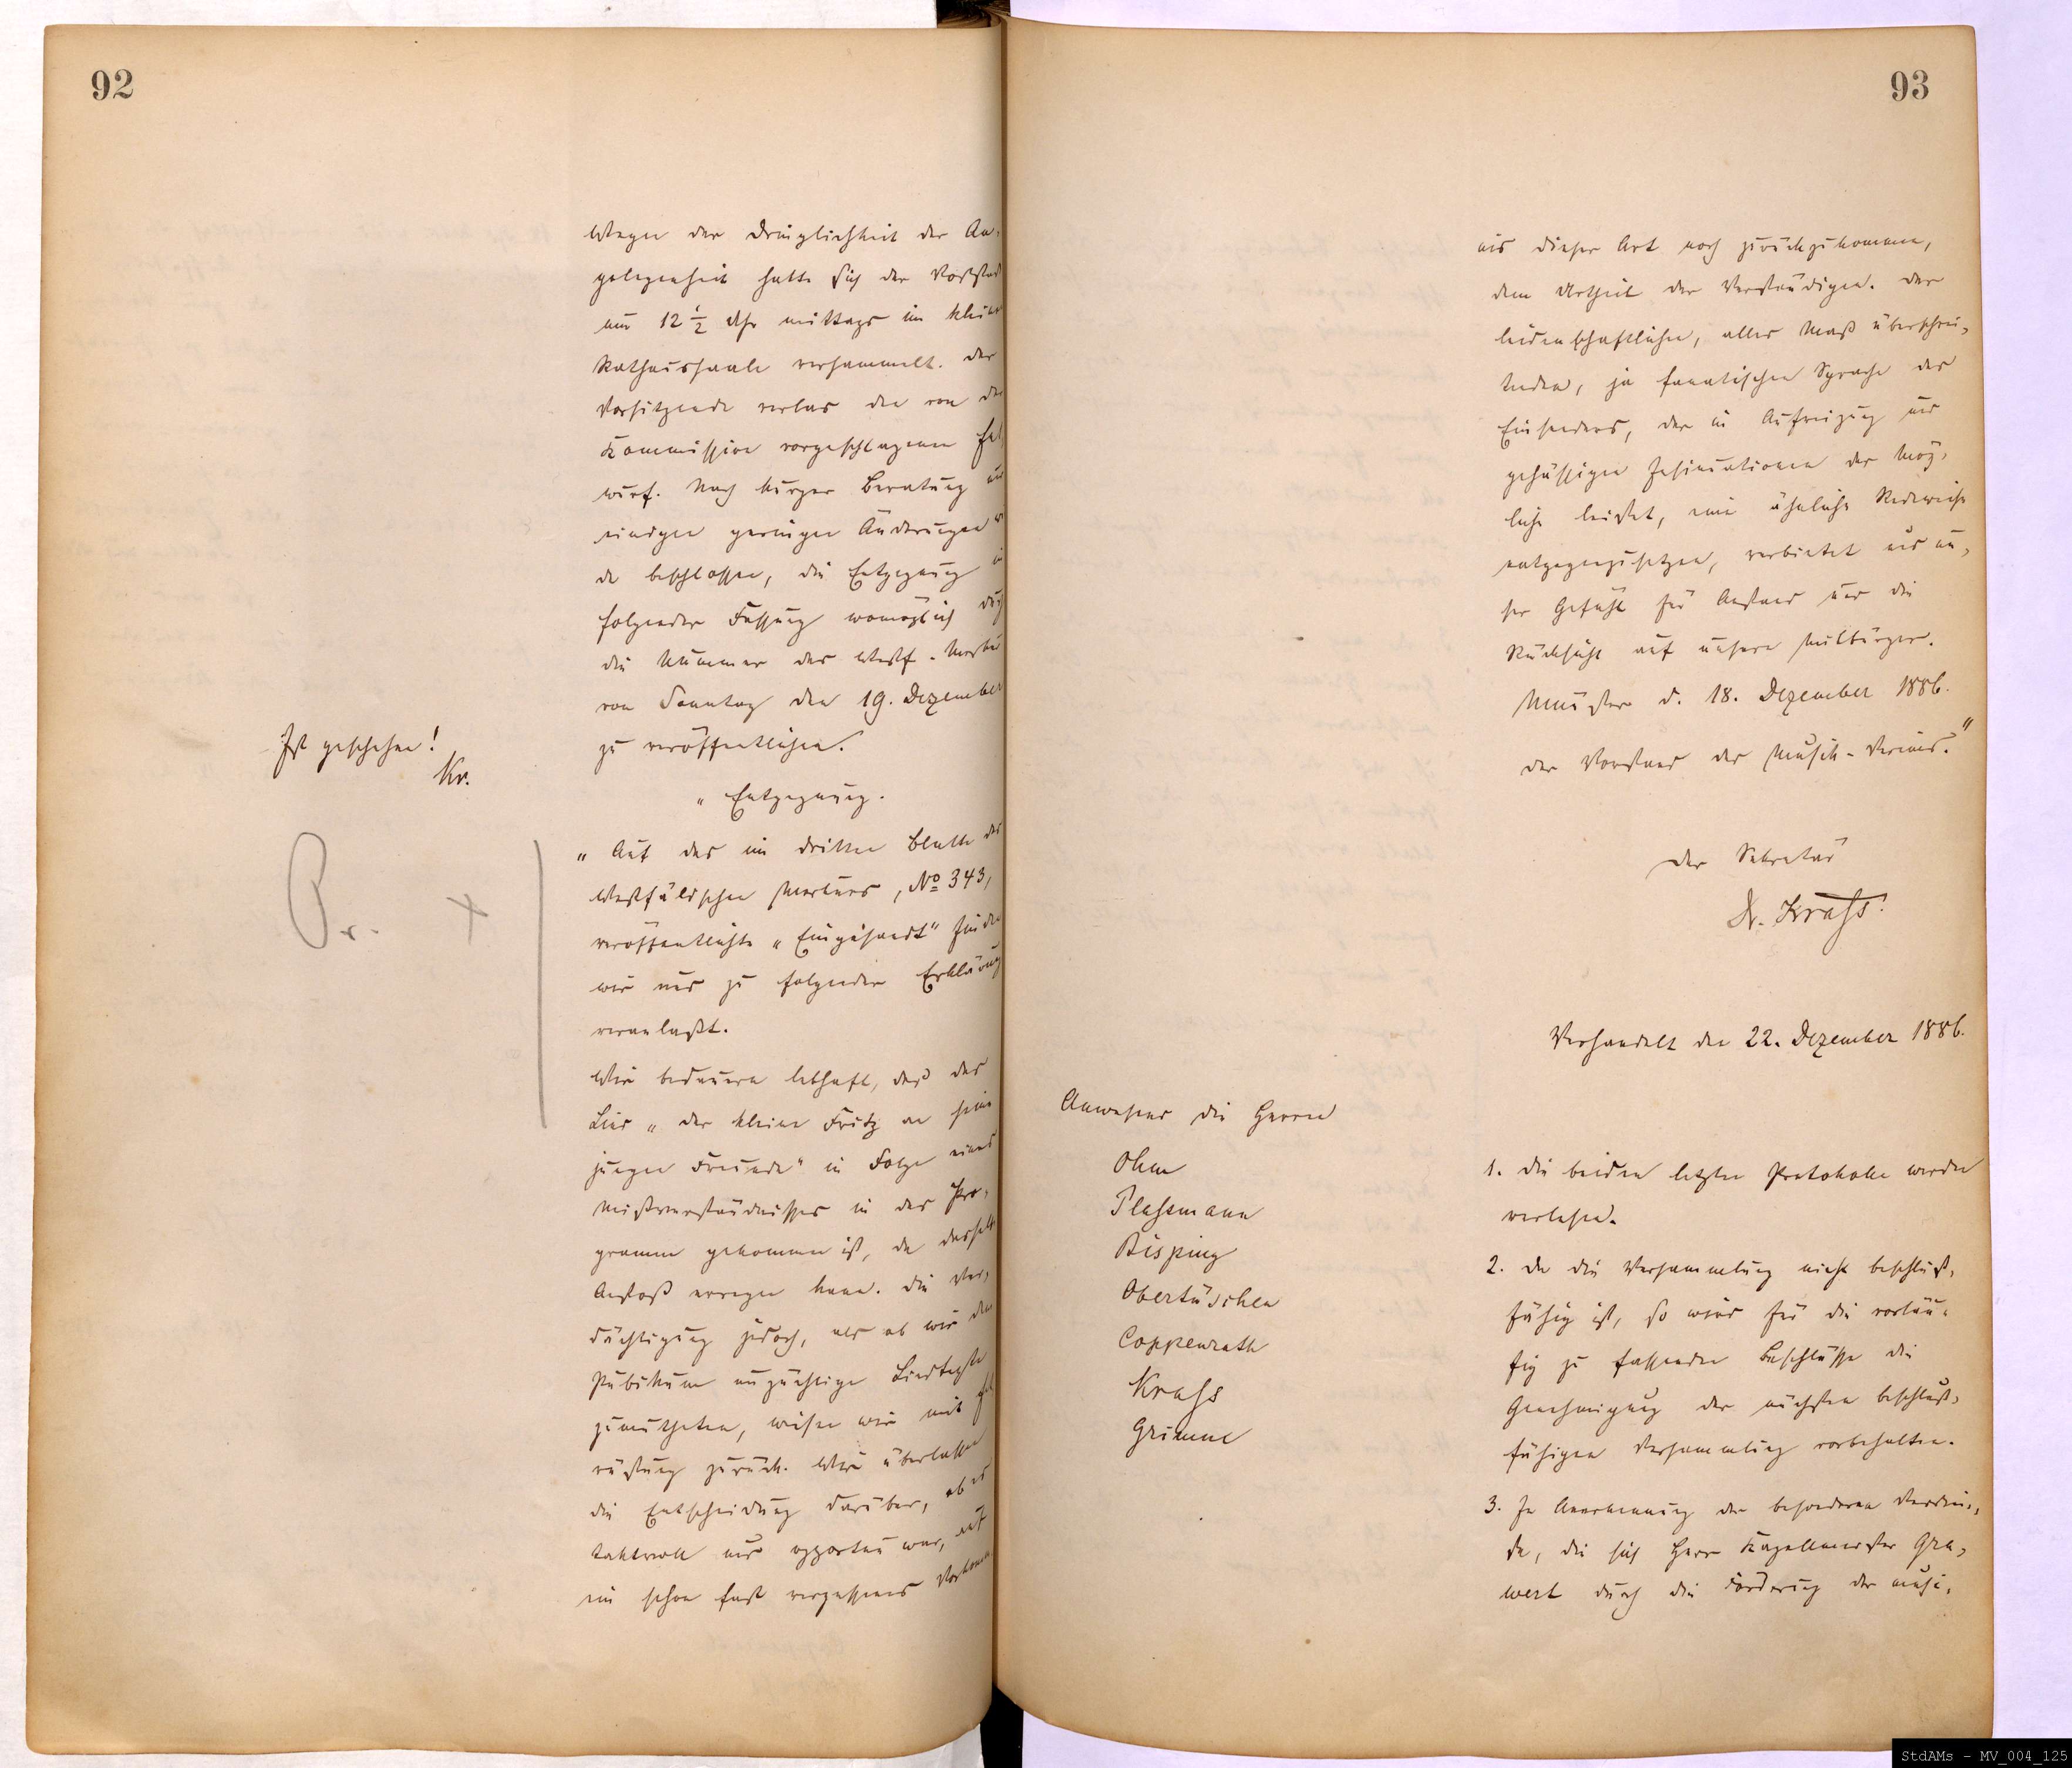 92
Wegen der Dringlichkeit der An-
gelegenheit hatte sich der Vorstand
um 12 1/2 Uhr mittags im kleinen
Rathaussaale versammelt. Der
Vorsitzende verlas den von der
Kommission vorgeschlagenen Ent
wurf. Nach kurzer Beratung und
einigen geringen Änderungen wur
de beschlossen, die Entgegnung in
folgender Fassung womöglich durch
die Nummer des Westf. Merkur
von Sonntag den 19. Dezember
zu veröffentlichen.
Ist geschehen!
Kr.
„Entgegnung.
Pr. +
„Auf das im dritten Blatte des
Westfälischen Merkurs, No 343,
veröffentlichte „Eingesandt" finden
wir uns zu folgender Erklärung
veranlaßt.
Wir bedauern lebhaft, daß das
Lied „der kleine Fritz an seine
jungen Freunde" in Folge eines
Mißverständnisses in das Pro-
gramm gekommen ist, da dasselbe
Anstoß erregen kann. Die Ver-
dächtigung jedoch, als ob wir dem
Publikum unzüchtige Liedtexte
zumutheten, weisen wir mit Ent
rüstung zurück. Wir überlassen
die Entscheidung darüber, ob es
taktvoll und opportun war, auf
ein schon fast vergessenes Vorkomm
93
nis dieser Art noch zurückzukommen,
dem Urtheil der Verständigen. Der
leidenschaftlichen, alles Maß überschrei-
tenden, ja fanatischen Sprache des
Einsenders, der in Aufreizung und
gehässigen Insinuationen das Mög-
liche leistet, eine ähnliche Redeweise
entgegenzusetzen, verbietet uns un-
ser Gefühl für Anstand und die
Rücksicht auf unsere Mitbürger.
Münster d. 18. Dezember 1886.
Der Vorstand des Musik-Vereins."
Der Sekretär
Dr. Krass.
Verhandelt den 22. Dezember 1886.
Anwesend die Herren
Ohm
Plassmann
Bisping
Obertüschen
Coppenrath
Krass
Grimme
1. Die beiden letzten Protokolle werden
verlesen.
2. Da die Versammlung nicht beschluß-
fähig ist, so wird für die vorläu-
fig zu fassenden Beschlüsse die
Genehmigung der nächsten beschluß-
fähigen Versammlung vorbehalten.
3. In Anerkennung der besonderen Verdien-
ste, die sich Herr Kapellmeister Gra-
wert durch die Förderung der musi-
StdAMs - MV_004_125